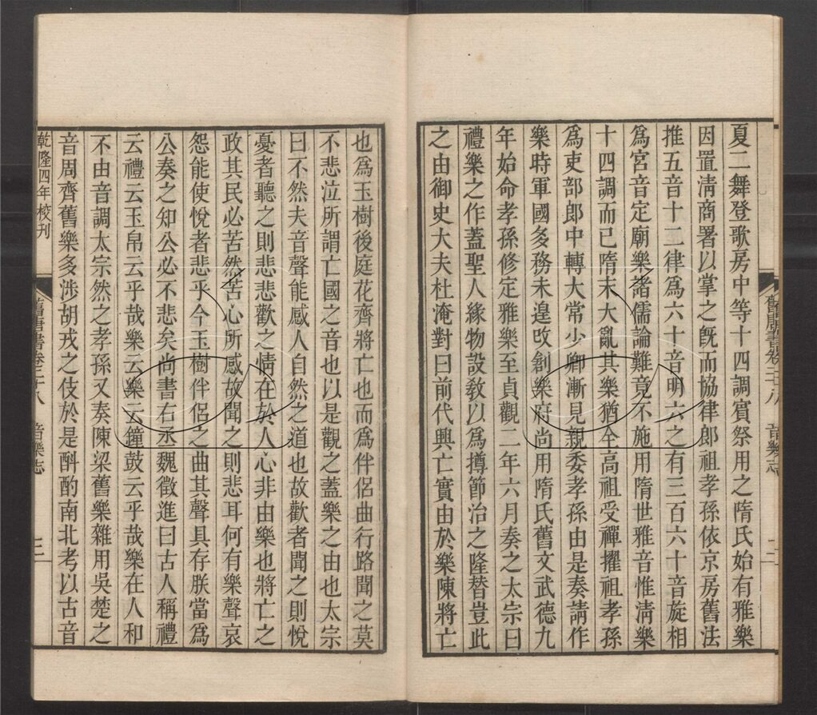 夏二舞登歌房中等十四調賓祭用之隋氏始有雅樂
因置清商署以掌之旣而協律郎祖孝孫依京房舊法
推五音十二律爲六十音明六之有三百六十音旋相
爲宮音定廟樂諸儒論難竟不施用隋世雅音惟清樂
十四調而已隋末大亂其樂猶全高祖受禪擢祖孝孫
爲吏部郎中轉太常少卿漸見親委孝孫由是奏請作
樂時軍國多務未遑改創樂府尚用隋氏舊文武德九
年始命孝孫修定雅樂至貞觀二年六月奏之太宗曰
禮樂之作蓋聖人緣物設教以爲撙節治之隆替豈此
之由御史大夫杜淹對曰前代興亡實由於樂陳將亡
舊唐書卷二十八 音樂志 二
也爲玉樹後庭花齊將亡也而爲伴侶曲行路聞之莫
不悲泣所謂亡國之音也以是觀之蓋樂之由也太宗
曰不然夫音聲能感人自然之道也故歡者聞之則悅
憂者聽之則悲悲歡之情在於人心非由樂也將亡之
政其民必苦然苦心所感故聞之則悲耳何有樂聲哀
怨能使悅者悲乎今玉樹伴侶之曲其聲具存朕當爲
公奏之知公必不悲矣尚書右丞魏徵進曰古人稱禮
云禮云玉帛云乎哉樂云樂云鐘鼓云乎哉樂在人和
不由音調太宗然之孝孫又奏陳梁舊樂雜用吳楚之
音周齊舊樂多涉胡戎之伎於是斟酌南北考以古音
乾隆四年校刊
舊唐書卷二十八 音樂志 三